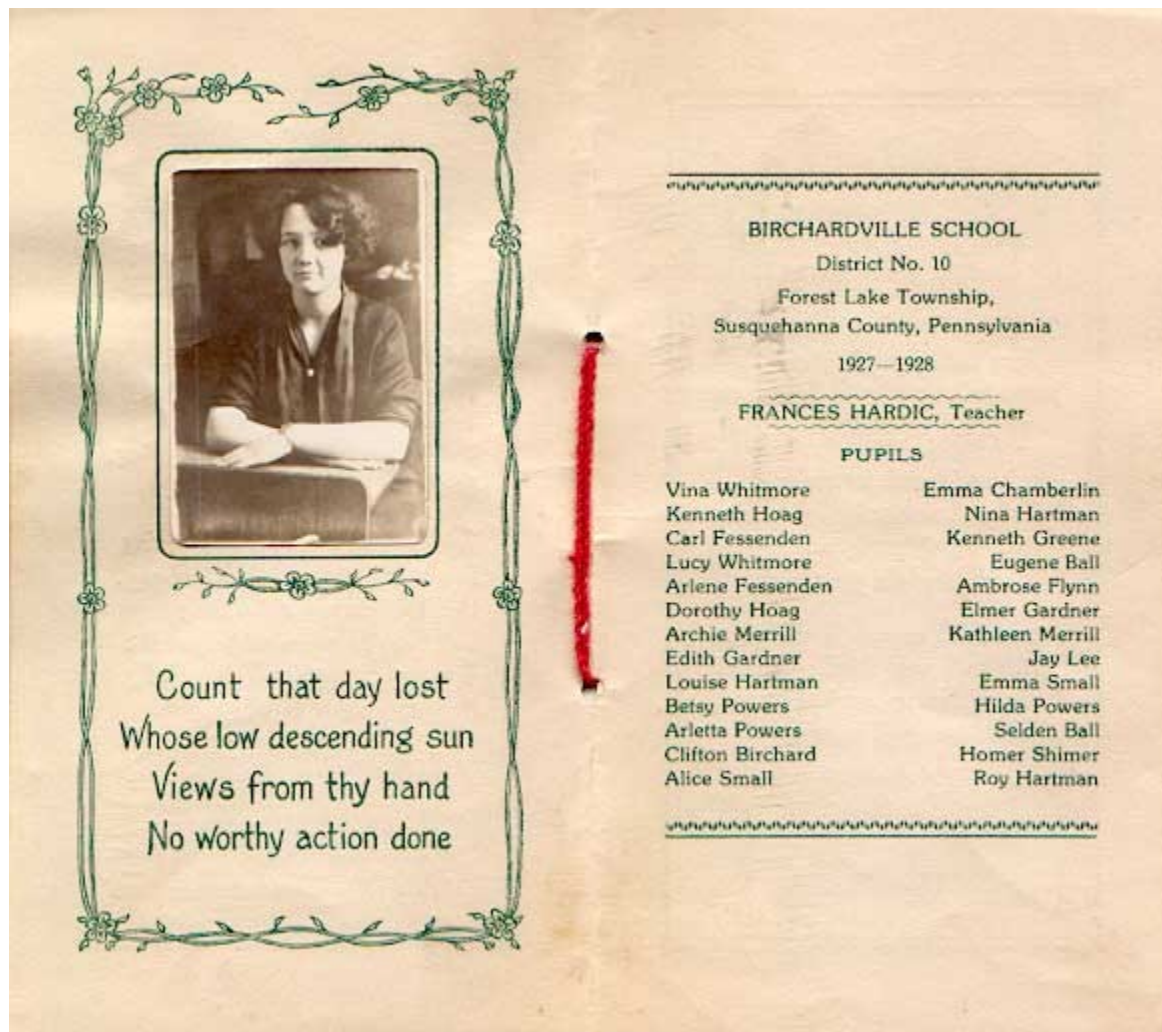 Count that day lost
Whose low descending sun
Views from thy hand
No worthy action done
BIRCHARDVILLE SCHOOL
District No. 10
Forest Lake Township,
Susquehanna County, Pennsylvania
1927—1928
FRANCES HARDIC, Teacher
PUPILS
Vina Whitmore
Kenneth Hoag
Carl Fessenden
Lucy Whitmore
Arlene Fessenden
Dorothy Hoag
Archie Merrill
Edith Gardner
Louise Hartman
Betsy Powers
Arletta Powers
Clifton Birchard
Alice Small
Emma Chamberlin
Nina Hartman
Kenneth Greene
Eugene Ball
Ambrose Flynn
Elmer Gardner
Kathleen Merrill
Jay Lee
Emma Small
Hilda Powers
Selden Ball
Homer Shimer
Roy Hartman